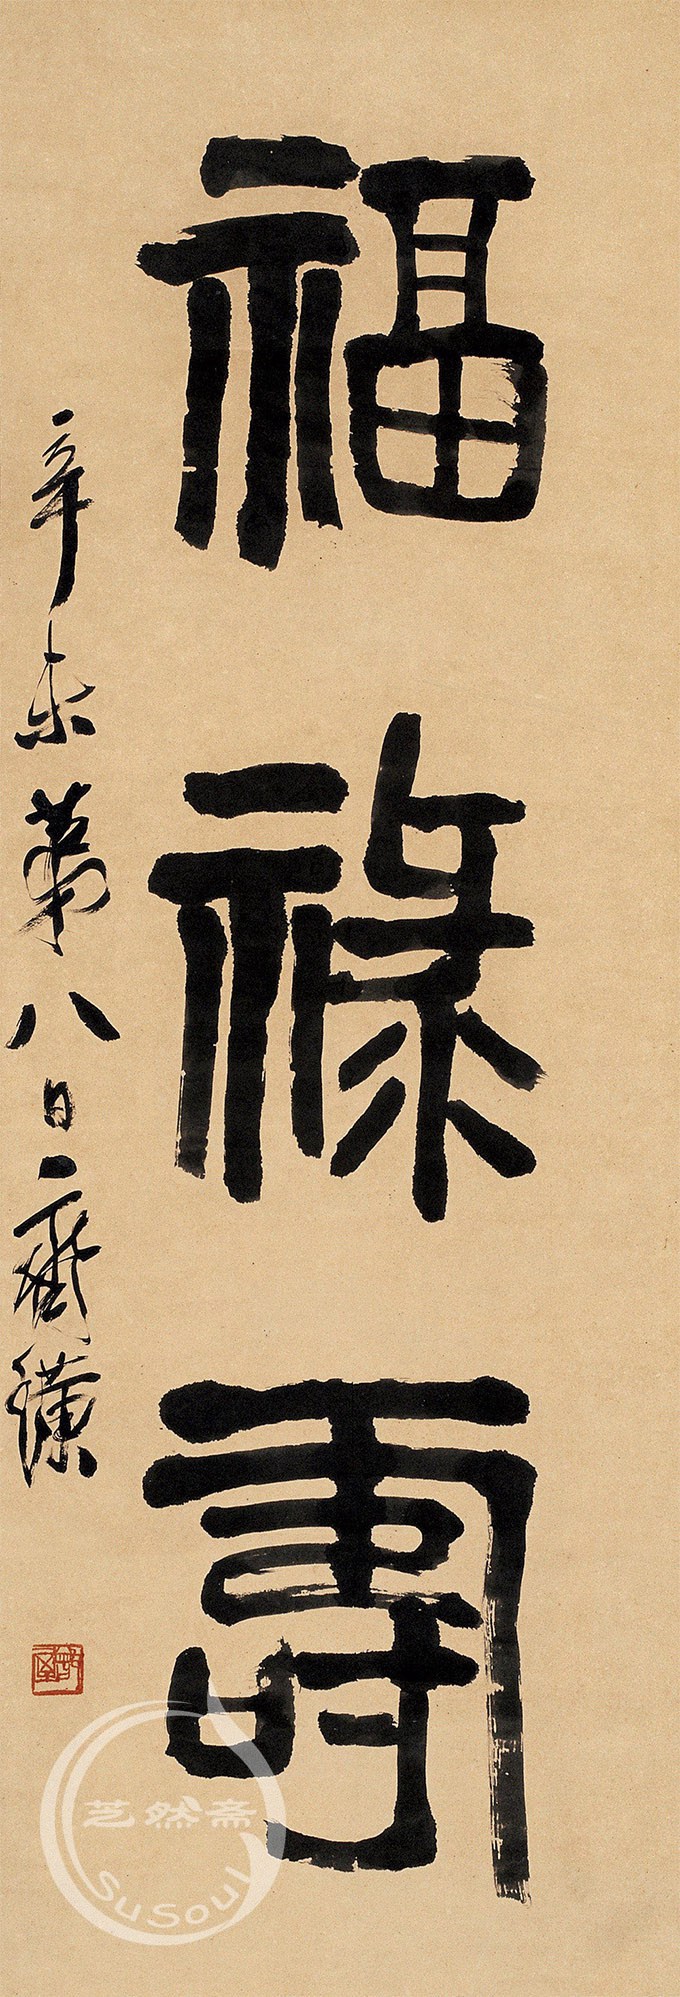 福祿壽
辛未第八日齊璜
芝然斋
SuSoul